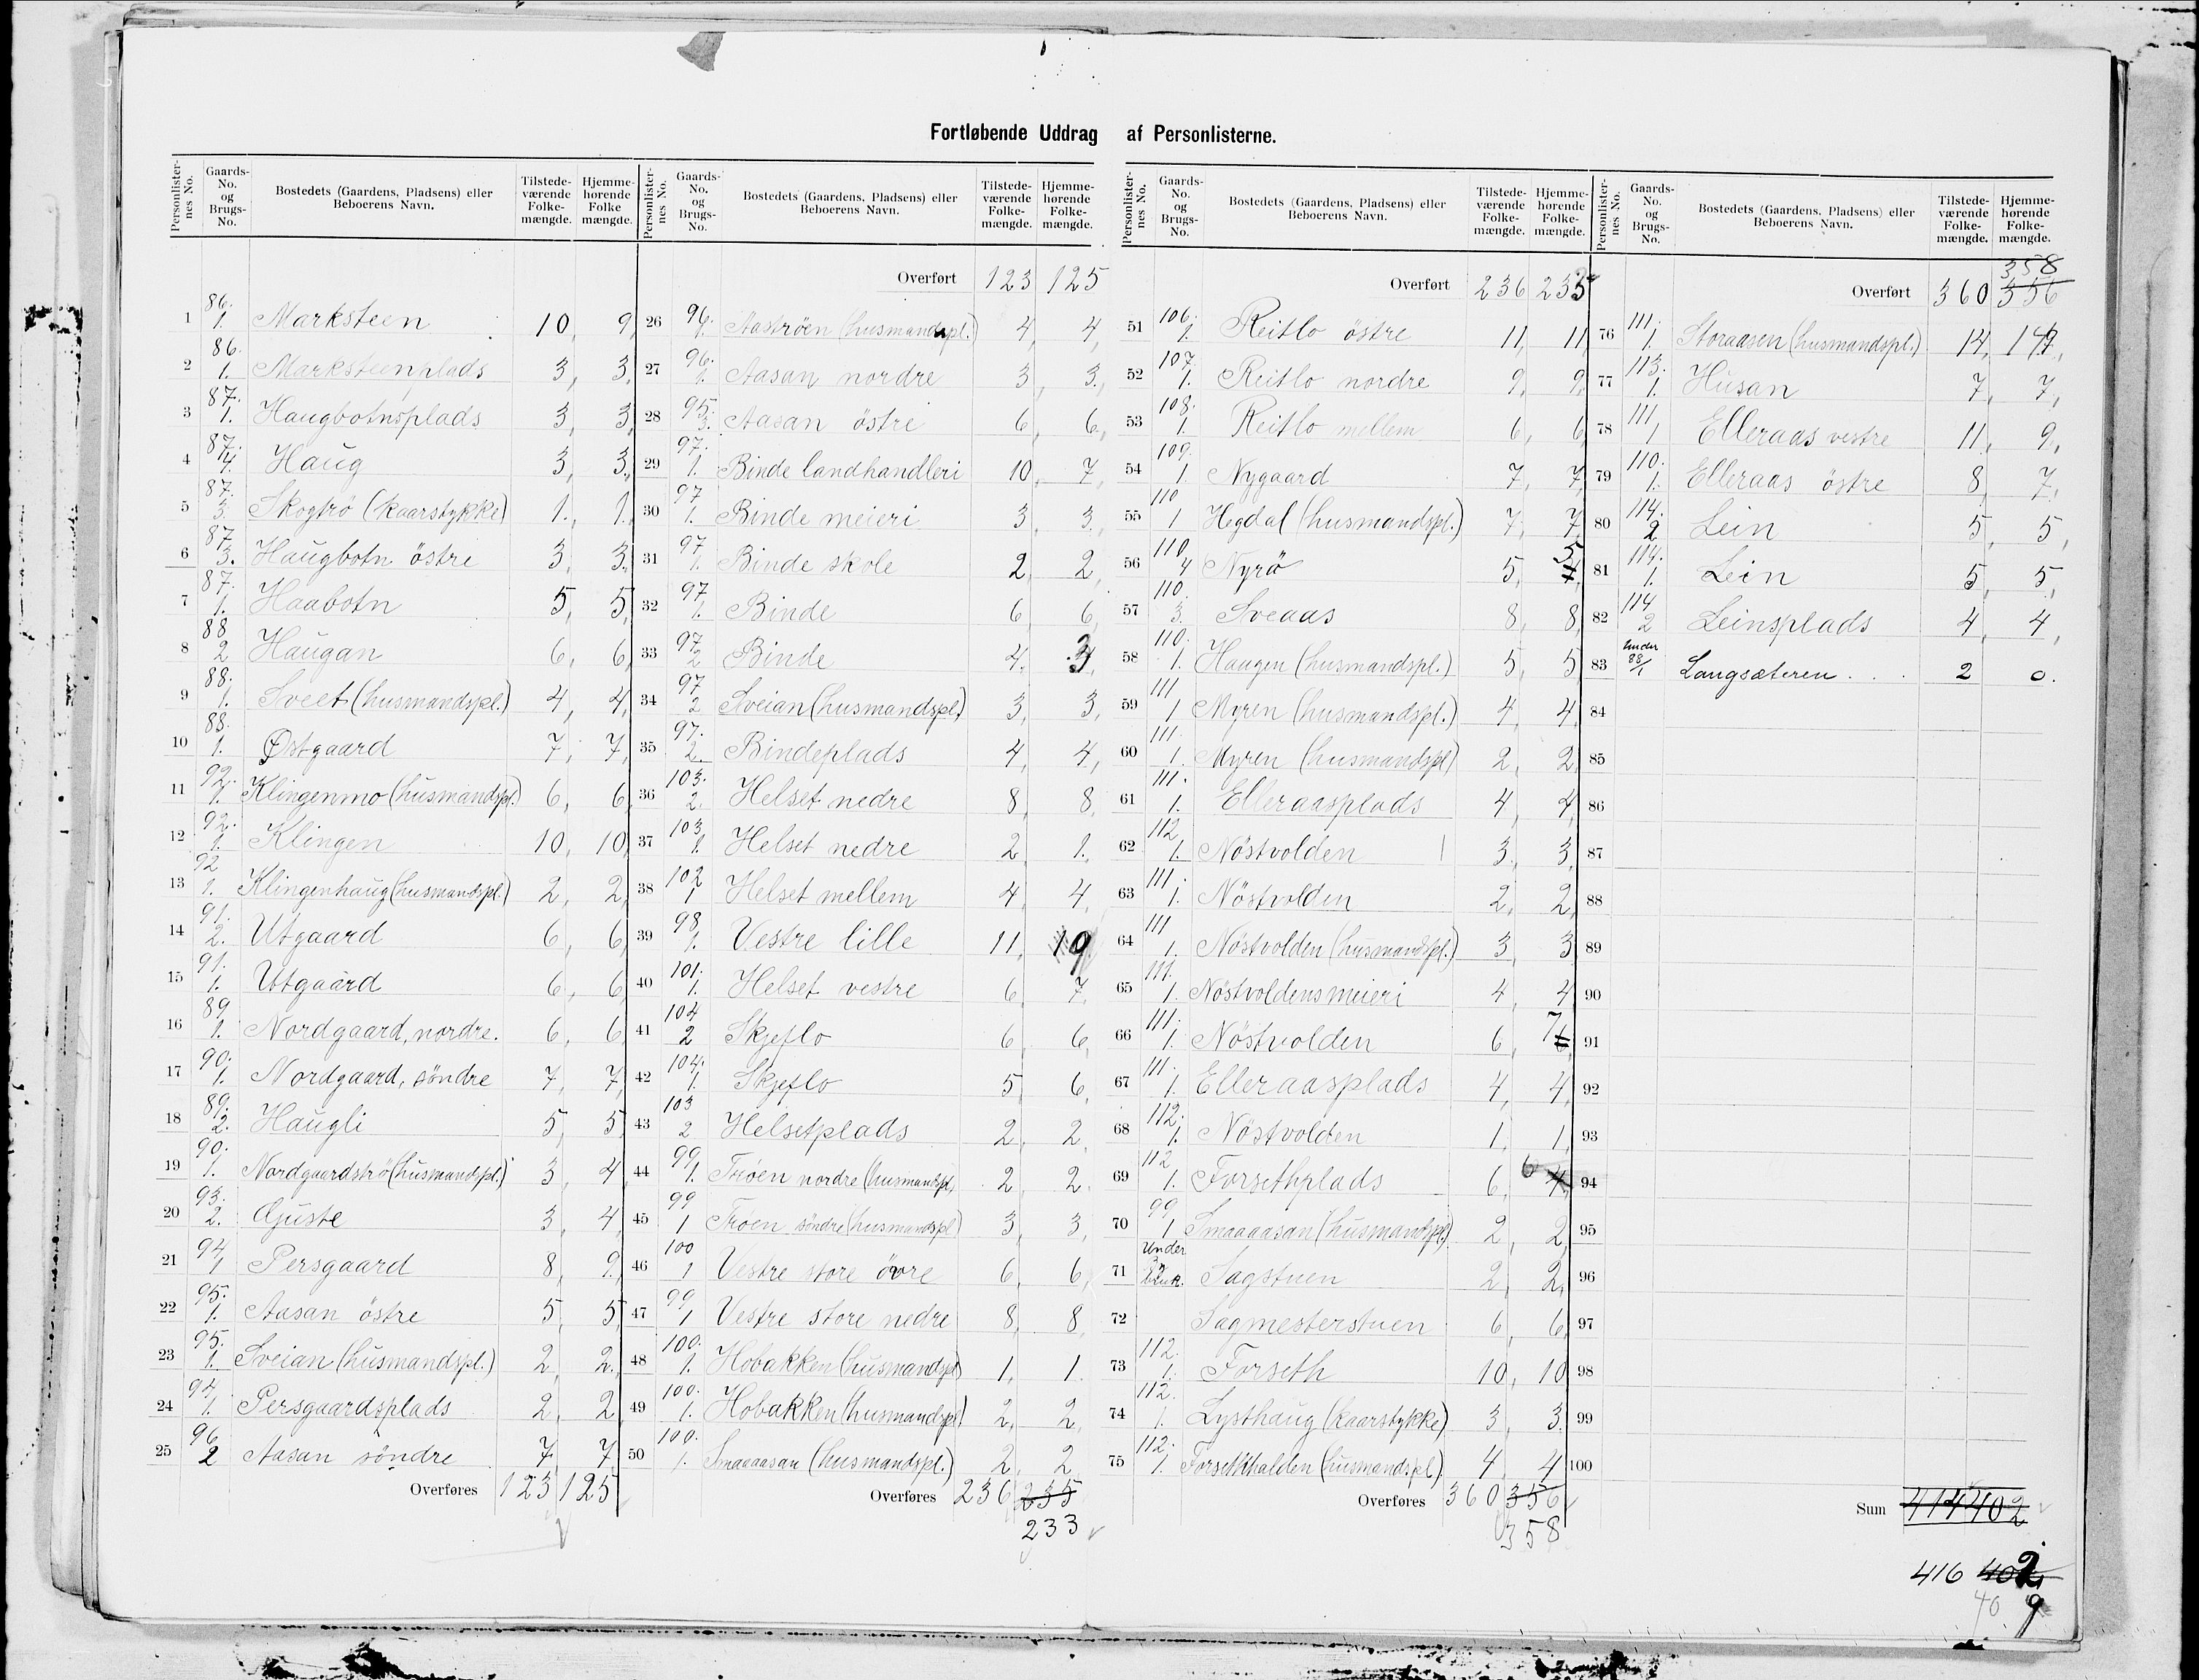 Fortløbende Uddrag af Personlisterne.
Personlisternes No. Gaards-No. og Brugs-No. Bostedets (Gaardens, Pladsens) eller Beboerens Navn. Tilstedeværende Folkemængde. Hjemmehørende Folkemængde.
1 86. 1. Marksteen 10, 9,
2 86. 1. Marksteenplads 3, 3,
3 87. 1. Haugbotnsplads 3, 3,
4 87. 4. Haug 3, 3,
5 87. 3 Skogtrö (kaarstykke) 1., 1.
6 87 3. Haugbotn östre 3, 3,
7 87. 1. Haabotn 5, 5,
8 88 2 Haugan 6, 6,
9 88. 1. Sveet (husmandspl.) 4, 4,
10 88. 1. Østgaard 7, 7,
11 92. 1. Klingenmo (husmandspl.) 6, 6,
12 92. 1. Klingen 10, 10,
13 92 1. Klingenhaug (husmandspl.) 2, 2,
14 91. 2. Utgaard 6, 6,
15 91. 1. Utgaard 6, 6
16 89 1. Nordgaard, nordre. 6, 6,
17 90. 1. Nordgaard, söndre 7, 7,
18 89. 2. Haugli 5, 5,
19 90. 1. Nordgaardströ (husmandspl.) 3, 4,
20 93. 2. Gjuste 3, 4,
21 94, 1 Persgaard 8, 9,
22 95. 1. Aasan östre 5, 5,
23 95. 1. Sveian (husmandspl.) 2, 2,
24 94, 1. Persgaardsplads 2, 2
25 96 2 Aasan söndre 7, 7,
Overføres 123 125
Overført 123 125
26 96. 1. Aaströen (husmandspl.) 4, 4,
27 96. 1. Aasan nordre 3, 3,
28 95. 3. Aasan östre 6, 6,
29 97. 1. Binde landhandleri 10, 7,
30 97 1. Binde meieri 3, 3,
31 97 1. Binde skole 2, 2,
32 97 1. Binde 6, 6,
33 97 2 Binde 4, 3,
34 97 2 Sveian (husmandspl.) 3, 3,
35 97. 2. Bindeplads 4, 4,
36 103. 2. Helset nedre 8, 8,
37 103, 1. Helset nedre 2, 1,
38 102 1 Helset mellem 4, 4,
39 98, 1. Vestre lille 11, 9
40 101. 1. Helset vestre 6, 7,
41 104 2 Skjeflo 6, 6,
42 104. 1. Skjeflo 5, 6,
43 103 2 Helsetplads 2, 2,
44 99 1. Tröen nordre (husmandspl. 2, 2
45 99 1 Tröen söndre (husmandspl) 3, 3,
46 100 1 Vestre store övre 6, 6,
47 99 1 Vestre store nedre 8, 8,
48 100. 1. Hobakken (husmandspl) 1, 1.
49 100. 1. Hobakken (husmandspl) 2, 2,
50 100. 1. Smaaaasan (husmandspl.) 2, 2
Overføres 236 235
233
Overført 236 235
51 106. 1. Reitlo östre 11, 11,
52 107. 1. Reitlo nordre 9, 9,
53 108. 1. Reitlo mellem 6, 6,
54 109. 1. Nygaard 7, 7,
55 110 1 Hegdal (husmandspl.) 7, 7,
56 110, 4 Nyrö 5, 4, 5
57 110. 3. Sveaas 8, 8,
58 110. 1. Haugen (husmandspl.) 5, 5
59 111 1 Myren (husmandspl.) 4, 4,
60 111. 1. Myren (husmandspl) 2, 2,
61 111. 1. Elleraasplads 4, 4,
62 112, 1. Nöstvolden 3, 3,
63 111. 1. Nöstvolden 2, 2,
64 111 1. Nöstvolden (husmandspl.) 3, 3
65 111. 1. Nöstvoldens meieri 4, 4
66 111. 1. Nöstvolden 6, 6 7
67 111. 1. Elleraasplads 4, 4,
68 112, 1. Nöstvolden 1, 1,
69 112 1. Forsethplads 6, 6 4
70 99 1 Smaaaasan (husmandspl) 2, 2
71 Under Sagstuen 2, 2,
72 Sagmesterstuen 6, 6,
73 112. 1. Forseth 10, 10
74 112. 1. Lysthaug (kaarstykke) 3, 3
75 112. 1. Forsethhalden (husmandspl.) 4, 4
Overføres 360 356
358
Overført 360 356 358
76 111. 1. Storaasen (husmandspl.) 14,
77 113. 1. Husan 7, 7,
78 111, 1 Elleraas vestre 11, 9,
79 110. 1. Elleraas östre 8, 7,
80 114. 2 Lein 5, 5,
81 114. 1. Lein 5, 5,
82 114 2 Leinsplads 4, 4,
83 Under 88/1 Langsæteren 2 0.
84
85
86
87
88
89
90
91
92
93
94
95
96
97
98
99
100
Sum 414 402
416 402
409